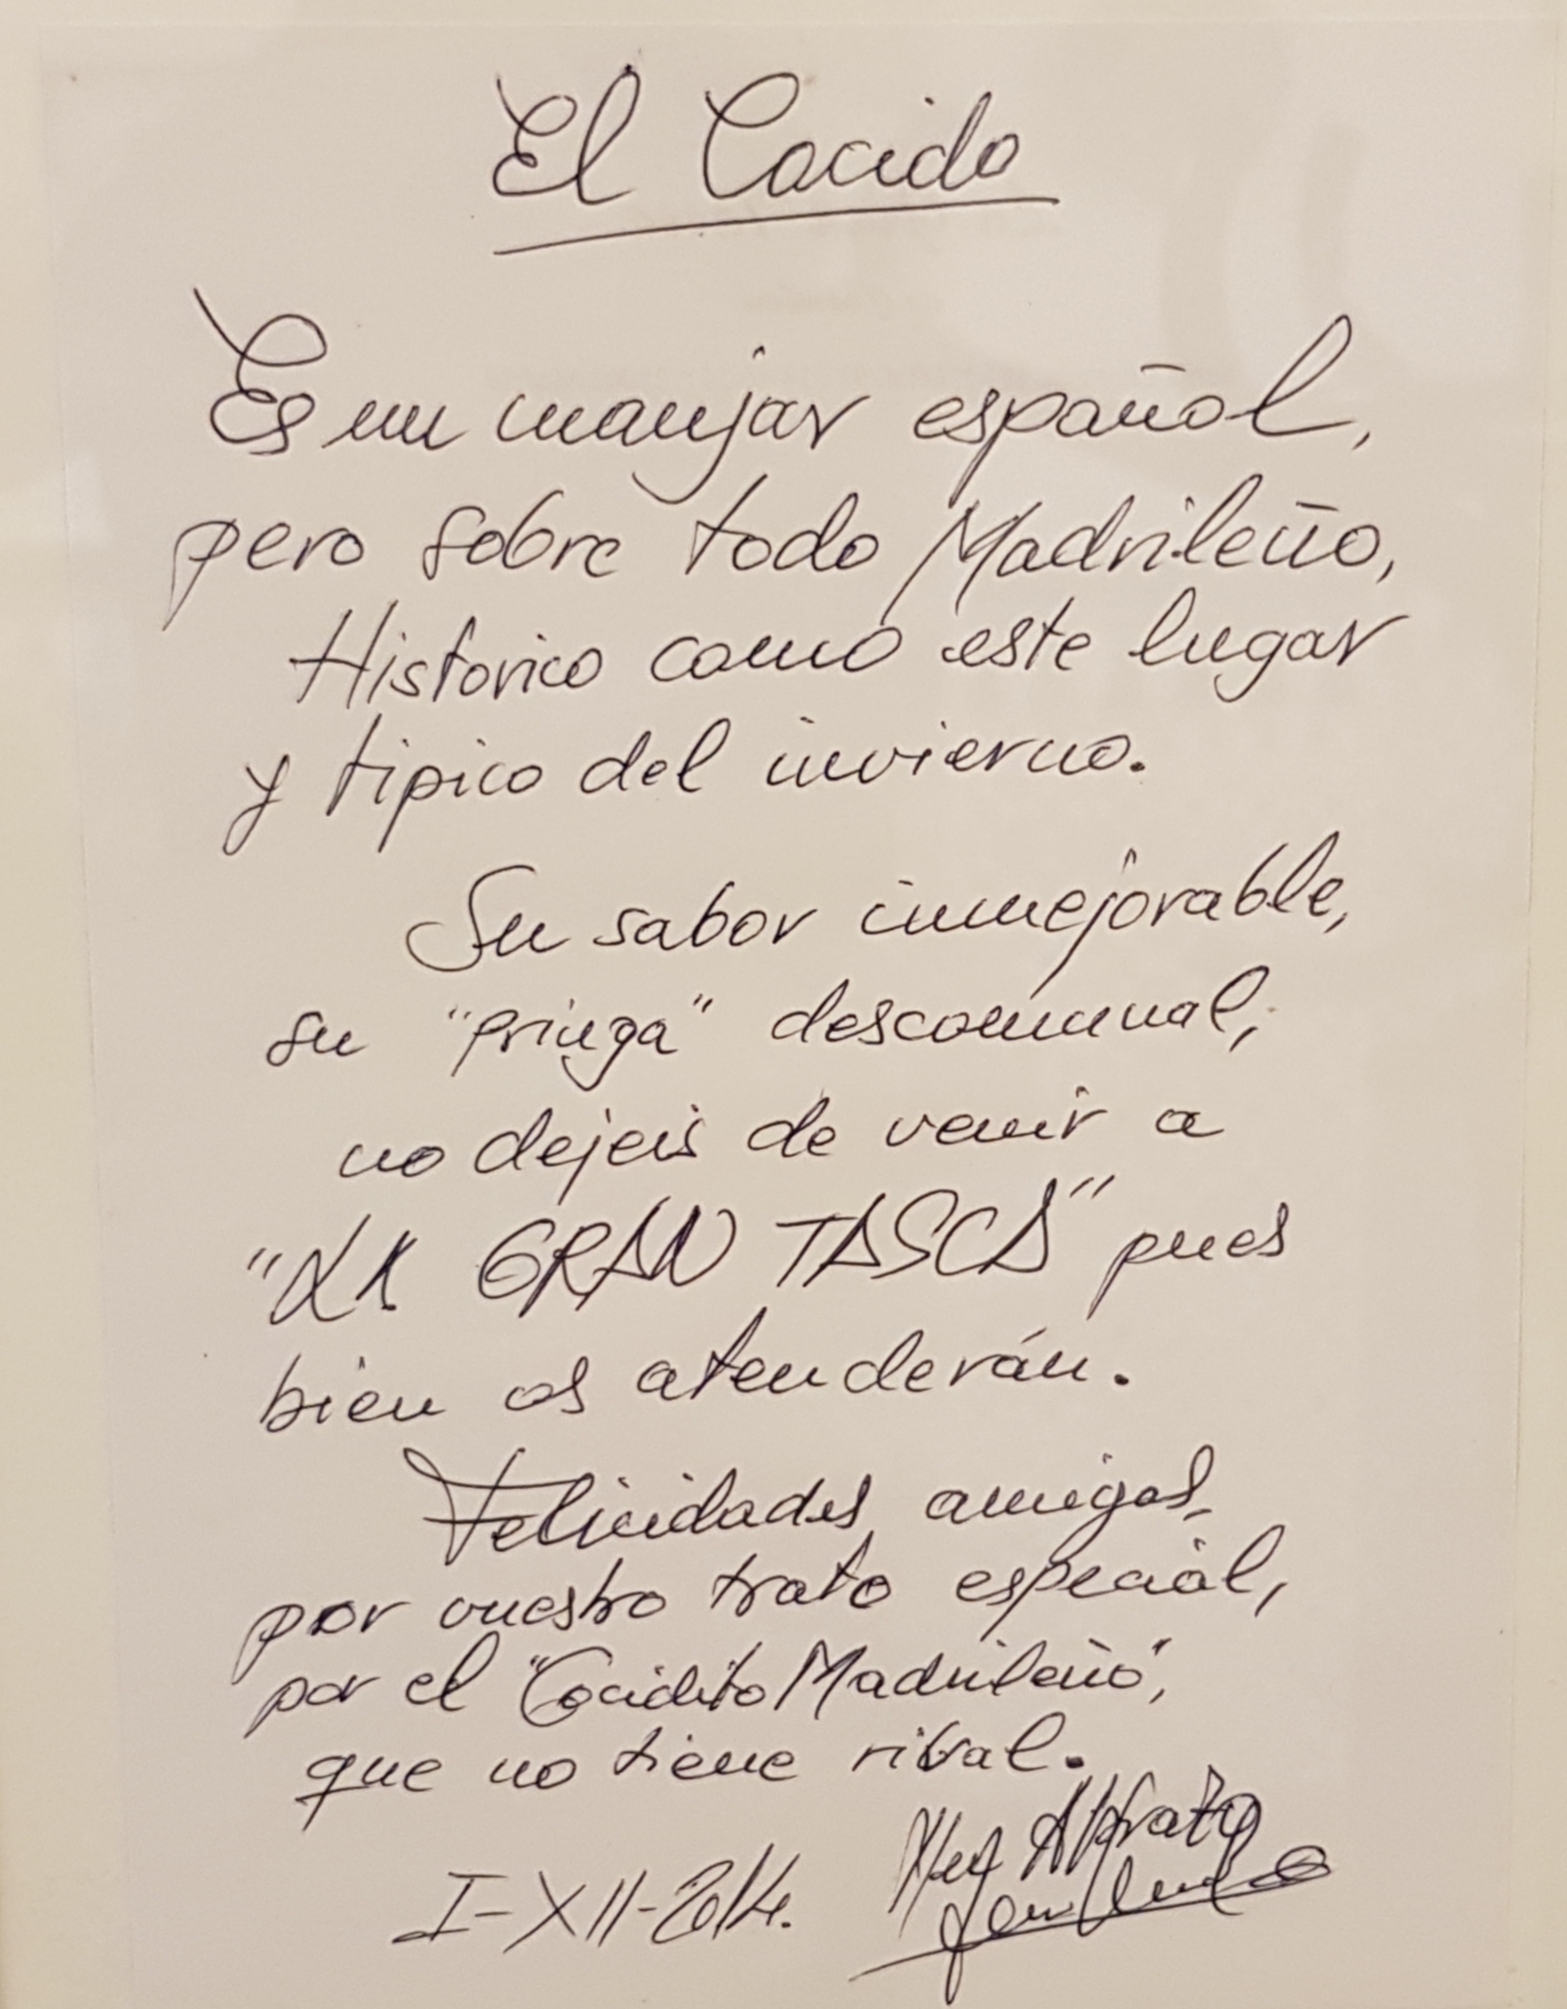 El Cocido
Es un manjar español,
pero sobre todo Madrileño,
Historico como este lugar
y tipico del invierno.
Su sabor inmejorable,
su "pringa" descomunal,
no dejeis de venir a
"LA GRAN TASCA" pues
bien os atenderán.
Felicidades amigos,
por vuestro trato especial,
por el "Cocidito Madrileño",
que no tiene rival.
I-XII-2014.